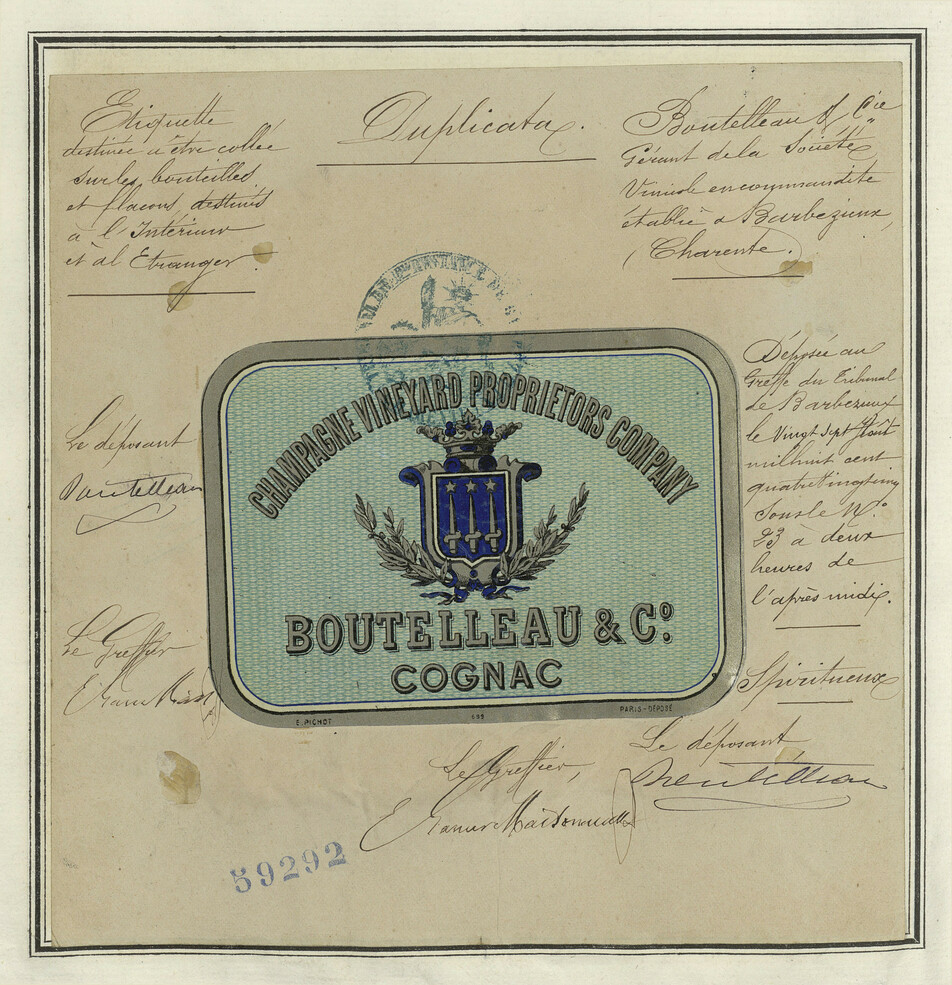 Duplicata.
Etiquette
destinée à être collée
sur les bouteilles
et flacons destinés
à l'Intérieur
et à l'Etranger.
Boutelleau & Cie
Gérant de la Société
Vinicole en commandite
établie à Barbezieux,
(Charente).
CHAMPAGNE VINEYARD PROPRIETORS COMPANY
BOUTELLEAU & Cº.
COGNAC
E. PICHOT
PARIS-DÉPOSÉ
Déposée au
Greffe du Tribunal
de Barbezieux
le Vingt sept Août
mil huit cent
quatre vingt cinq
sous le Nº
23 à deux
heures de
l'après midi.
Spiritueux
Le déposant
Boutelleau
Le Greffier
Le Greffier,
Le déposant
Boutelleau
59292